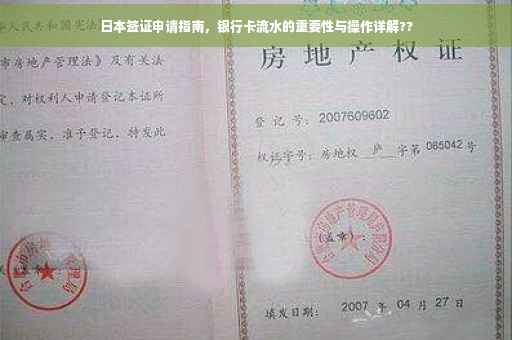 日本签证申请指南，银行卡流水的重要性与操作详解??
人民共和国宪法
市房地产管理法》及有关法
定，对权利人申请登记本证所
审查属实，准予登记，特发此
房地产权
登记号：2007609602
权证字号：房地权 庐 字第 065042 号
(盖章)：
填发日期： 2007 年 04 月 27 日